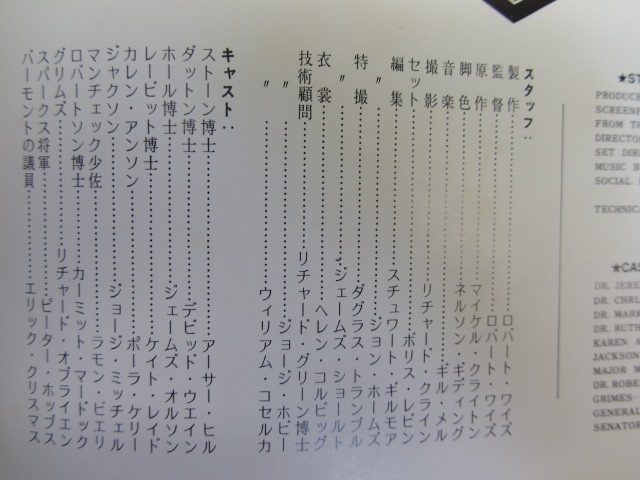 スタッフ：
製作……ロバート・ワイズ
監督……ロバート・ワイズ
原作……マイケル・クライトン
脚色……ネルソン・ギディング
音楽……ギル・メル
撮影……リチャード・クライン
セット……ボリス・レビン
編集……スチュワート・ギルモア
……ジョン・ホームズ
特撮……ダグラス・トランブル
〃……ジェームズ・ショールト
衣裳……ヘレン・コルビッグ
技術顧問……リチャード・グリーン博士
〃……ジョージ・ホビー
〃……ウィリアム・コセルカ
キャスト：
ストーン博士……アーサー・ヒル
ダットン博士……デビッド・ウエイン
ホール博士……ジェームズ・オルソン
レービット博士……ケイト・レイド
カレン・アンソン……ポーラ・ケリー
ジャクソン……ジョージ・ミッチェル
マンチェック少佐……ラモン・ビエリ
ロバートソン博士……カーミット・マードック
グリムズ……リチャード・オブライエン
スパークス将軍……ピーター・ホッブス
バーモントの議員……エリック・クリスマス
★ST
PRODUC
SCREENP
FROM TH
DIRECTO
SET DIR
MUSIC B
SOCIAL
TECHNIC
★CAS
DR. JERE
DR. CHRI
DR. MARK
DR. RUTH
KAREN A
JACKSON
MAJOR M
DR. ROBE
GRIMES—
GENERAL
SENATOR